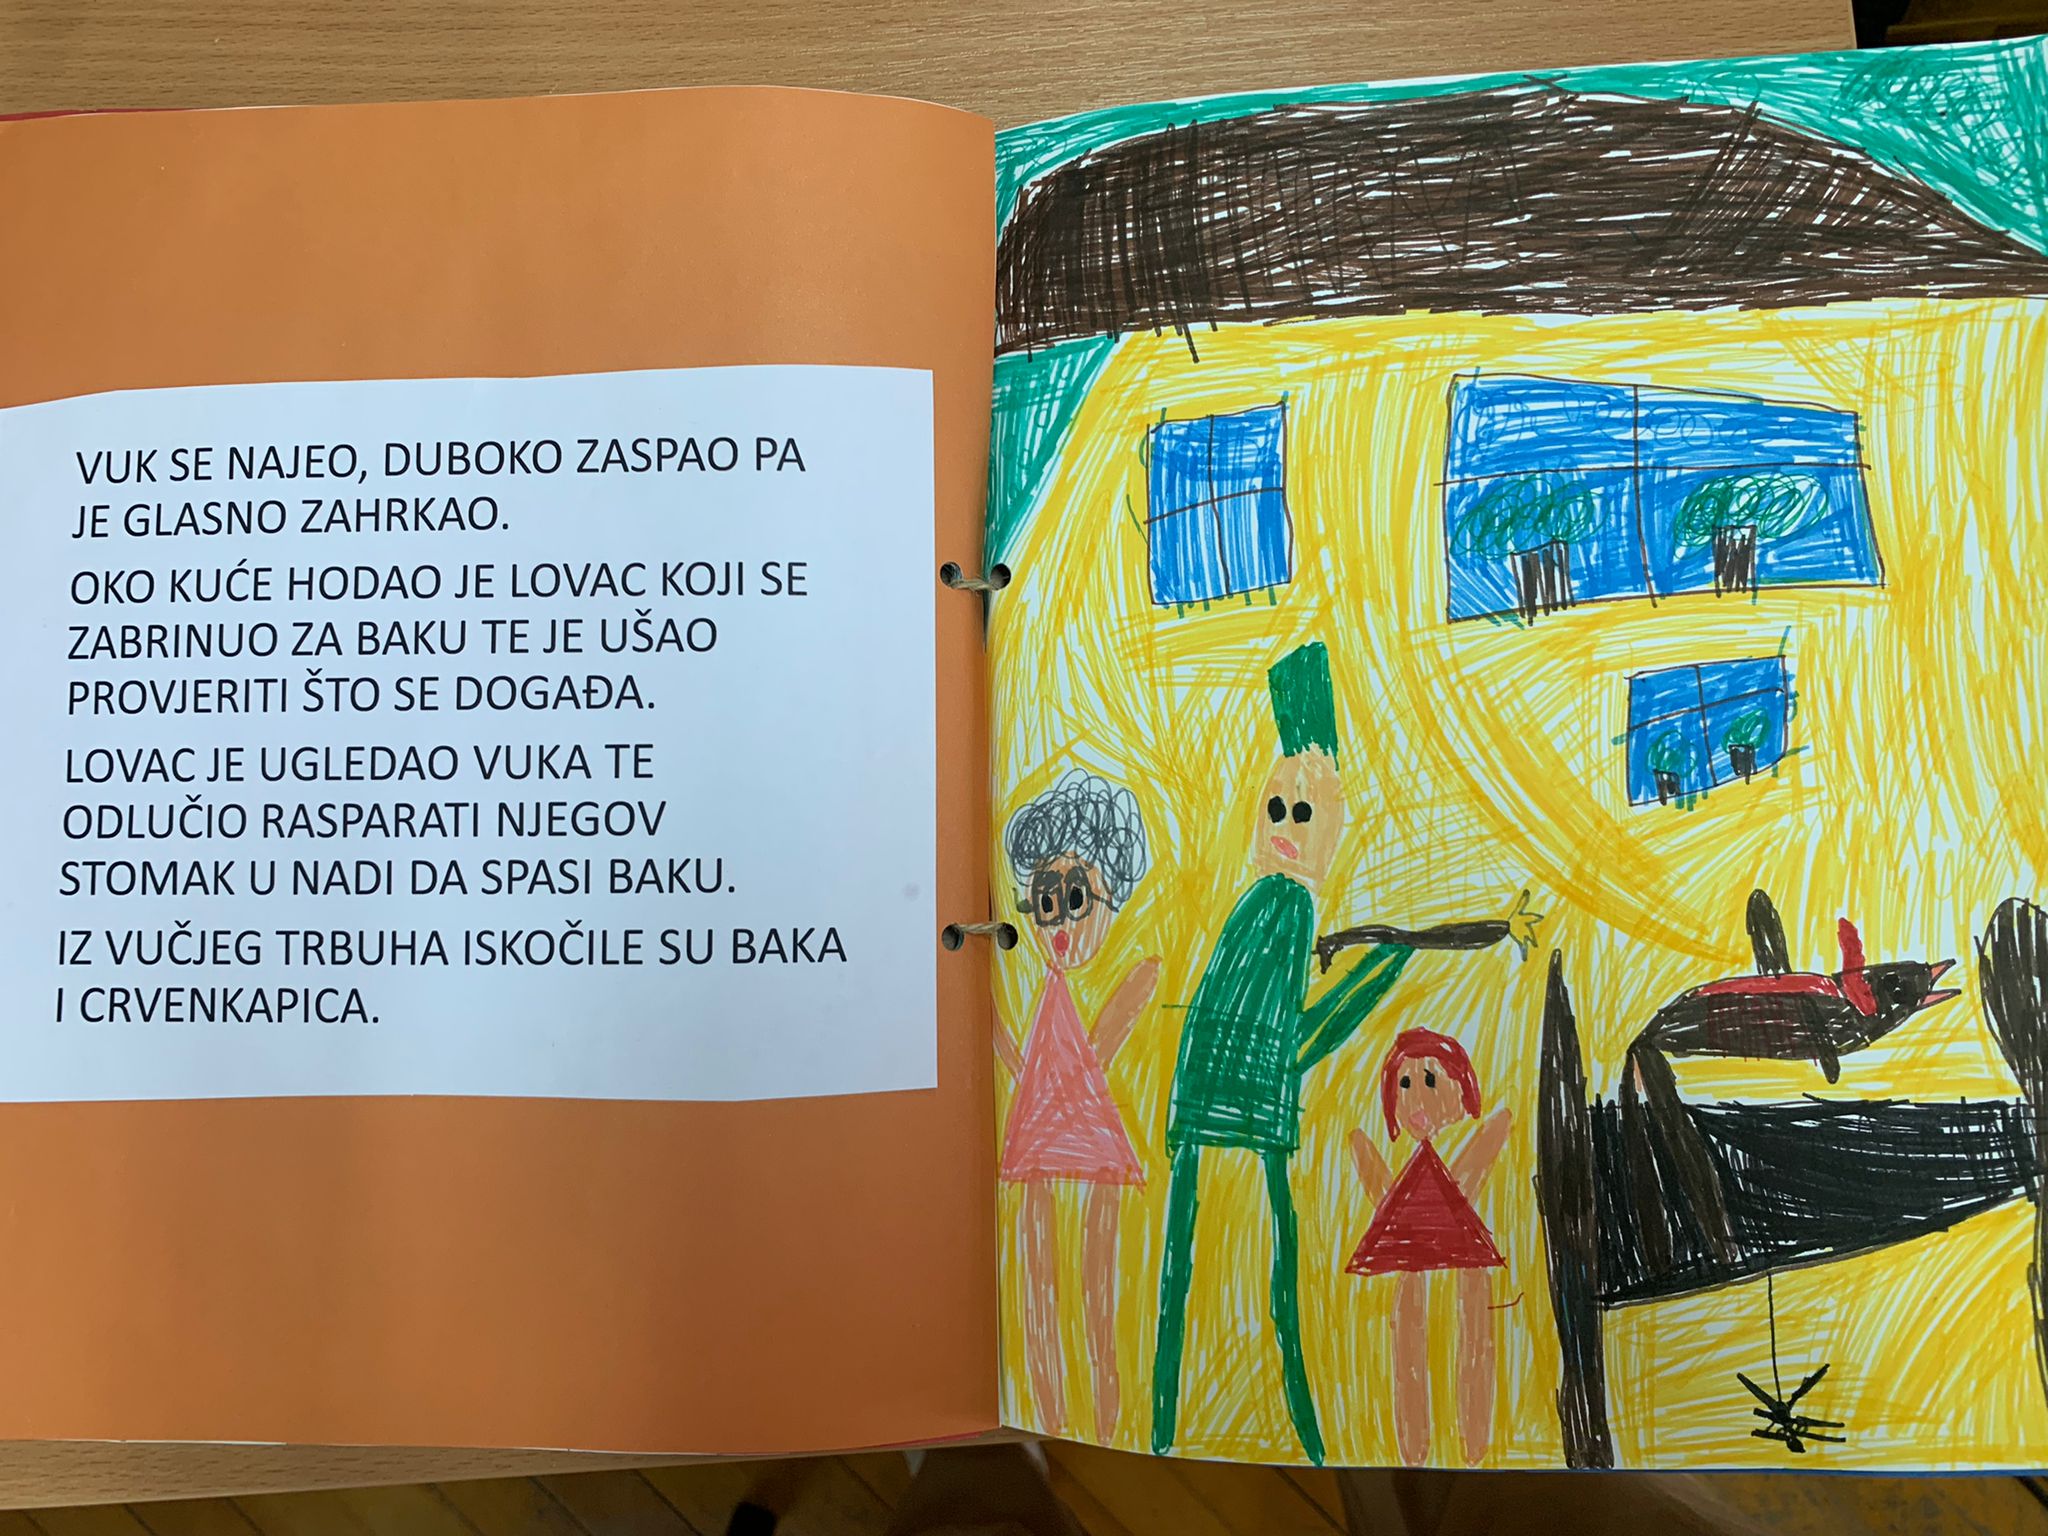 VUK SE NAJEO, DUBOKO ZASPAO PA
JE GLASNO ZAHRKAO.
OKO KUĆE HODAO JE LOVAC KOJI SE
ZABRINUO ZA BAKU TE JE UŠAO
PROVJERITI ŠTO SE DOGAĐA.
LOVAC JE UGLEDAO VUKA TE
ODLUČIO RASPARATI NJEGOV
STOMAK U NADI DA SPASI BAKU.
IZ VUČJEG TRBUHA ISKOČILE SU BAKA
I CRVENKAPICA.